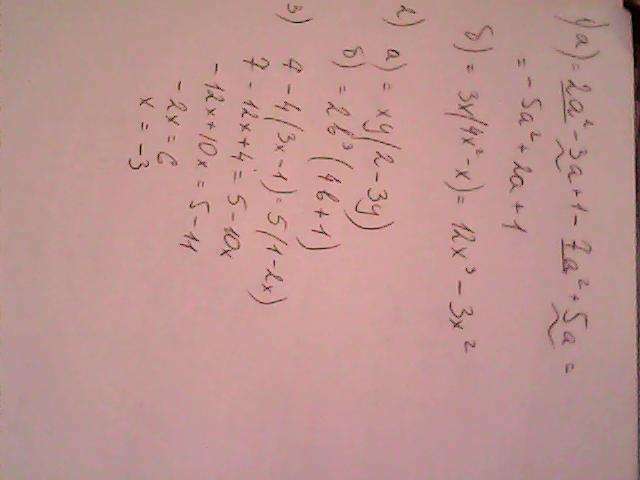 1) а) = 2a² - 3a + 1 - 7a² + 5a =
= -5a² + 2a + 1
б) = 3x(4x² - x) = 12x³ - 3x²
2) а) = xy(2 - 3y)
б) = 2b³(4b + 1)
3) 7 - 4(3x - 1) = 5(1 - 2x)
7 - 12x + 4 = 5 - 10x
-12x + 10x = 5 - 11
-2x = 6
x = -3